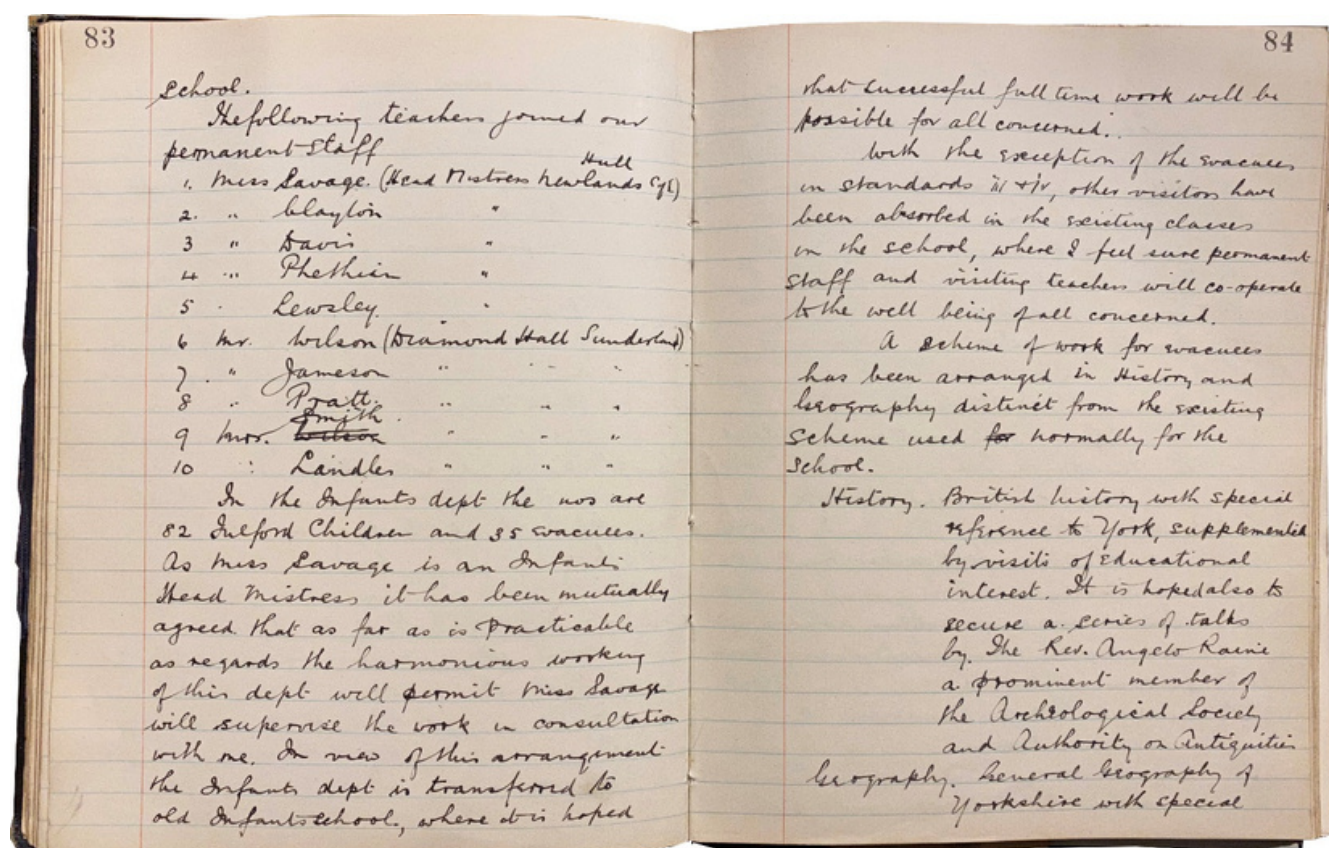 83
school.
The following teachers joined our
permanent Staff
Hull
1. Miss Savage. (Head Mistress Newlands
2. " Clayton "
3 " Davis "
4 " Phethian "
5 . Lewsley. "
6 Mr. Wilson (Diamond Hall Sunderland)
7. " Jameson " " " "
8 " Pratt. " " "
Smith
9 Mrs. Wilson " " "
10 " Landles " " "
In the Infants dept the nos are
82 Fulford Children and 35 evacuees.
As Miss Savage is an Infants
Head Mistress it has been mutually
agreed that as far as is Practicable
as regards the harmonious working
of this dept will permit Miss Savage
will supervise the work in consultation
with me. In view of this arrangement
the Infants dept is transferred to
old Infants school, where it is hoped
84
that successful full time work will be
possible for all concerned..
With the exception of the evacuees
in standards iii + iv, other visitors have
been absorbed in the existing classes
in the school, where I feel sure permanent
staff and visiting teachers will co-operate
to the well being of all concerned.
A scheme of work for evacuees
has been arranged in History and
Geography distinct from the existing
scheme used for normally for the
school.
History. British history with special
reference to York, supplemented
by visits of Educational
interest. It is hoped also to
secure a series of talks
by. The Rev. Angelo Raine
a prominent member of
the Archeological Society
and Authority on Antiquities
Geography. General Geography of
Yorkshire with special